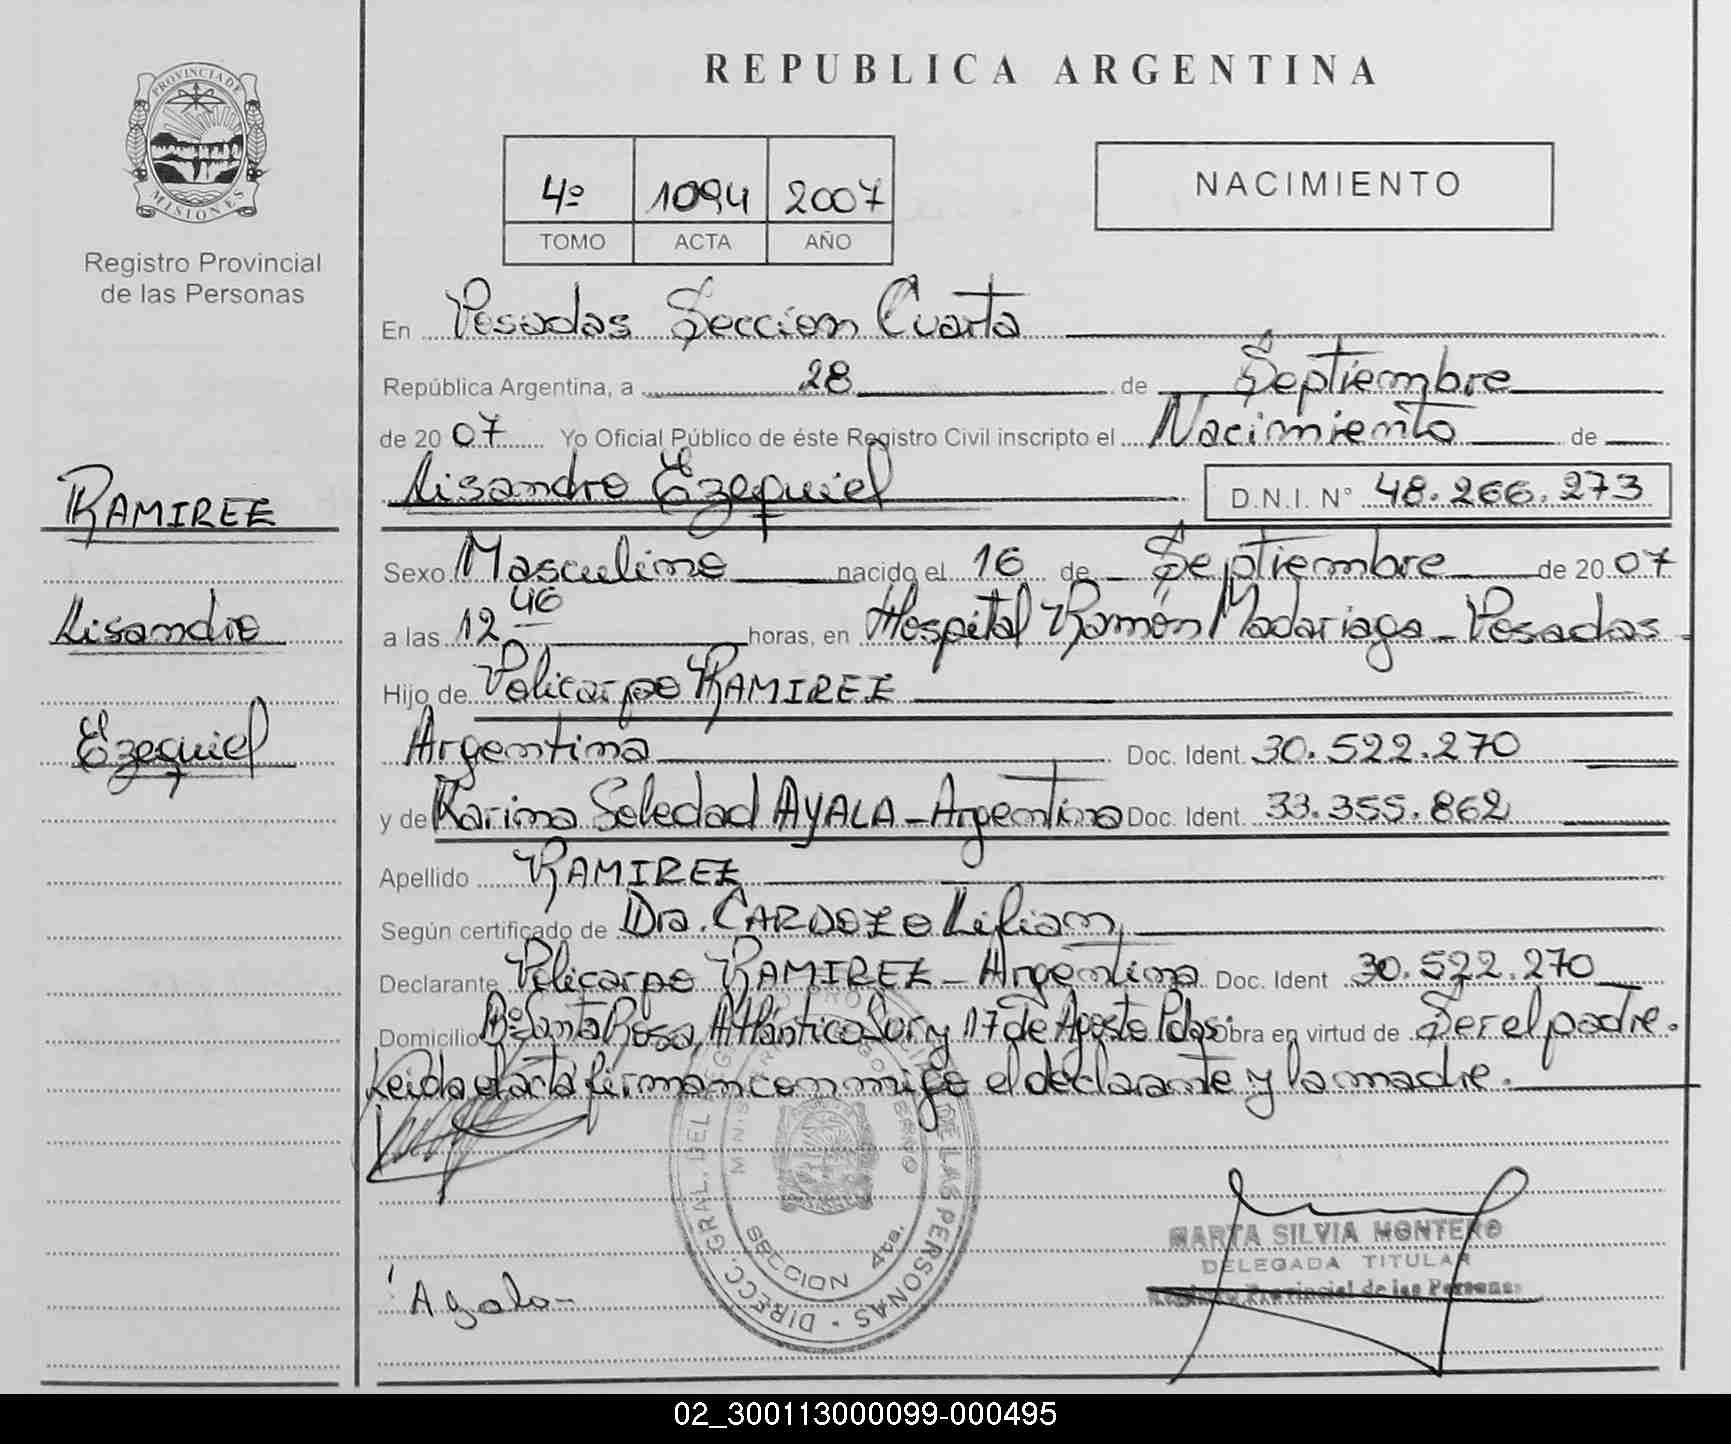 REPUBLICA ARGENTINA
PROVINCIA DE
MISIONES
Registro Provincial
de las Personas
4º 1094 2007
TOMO ACTA AÑO
NACIMIENTO
En Posadas Sección Cuarta
República Argentina, a 28 de Septiembre
de 2007 Yo Oficial Público de éste Registro Civil inscripto el Nacimiento de
Lisandro Ezequiel D.N.I. N° 48.266.273
RAMIREZ
Lisandro
Ezequiel
Sexo Masculino nacido el 16 de Septiembre de 2007
a las 12 46 horas, en Hospital Ramón Madariaga - Posadas
Hijo de Policarpo RAMIREZ
Argentina Doc. Ident. 30.522.270
y de Karina Soledad AYALA - Argentina Doc. Ident. 33.355.862
Apellido RAMIREZ
Según certificado de Dra. CARDOZO Lilian
Declarante Policarpo RAMIREZ - Argentina Doc. Ident 30.522.270
Domicilio Bº Santa Rosa, Atlántico Sur y 17 de Agosto Pdas. Obra en virtud de Ser el padre.
Leida el acta firman conmigo el declarante y la madre.
DIRECC. GRAL. DEL REGISTRO DE LAS PERSONAS
SECCION 4ta.
MARTA SILVIA MONTERO
DELEGADA TITULAR
Registro Provincial de las Personas
Ayala-
02_300113000099-000495